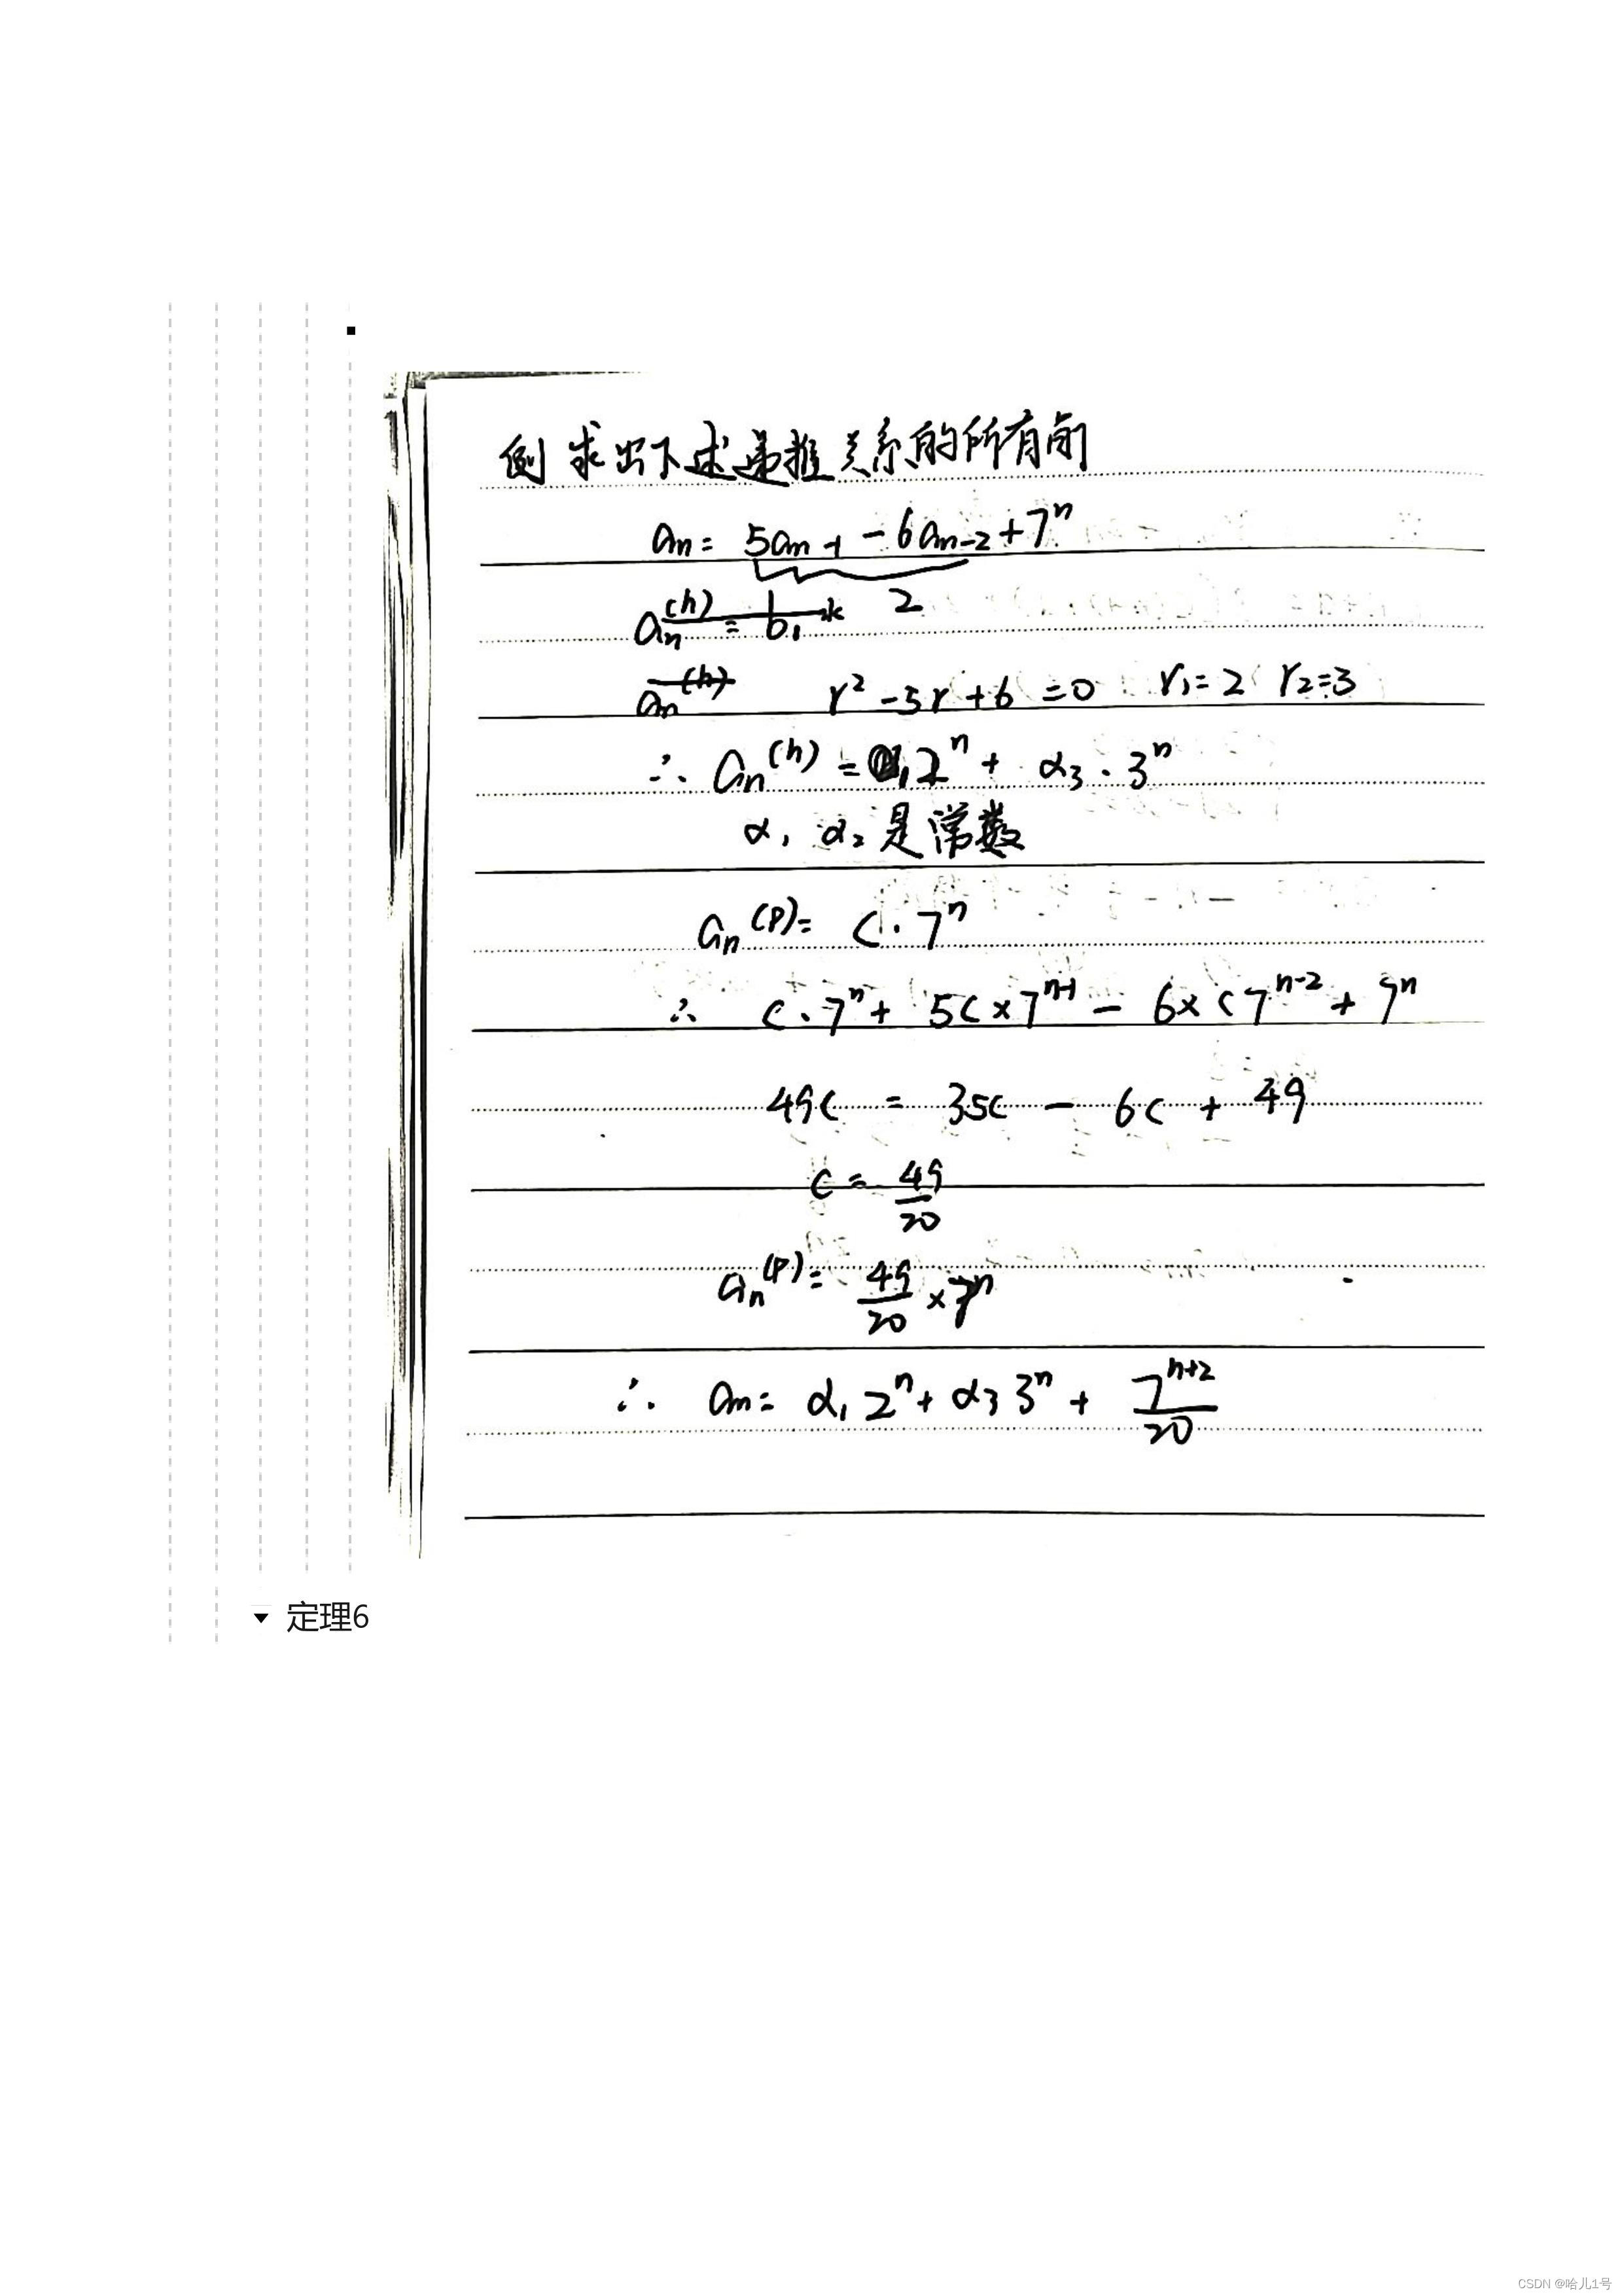 例 求出下述递推关系的所有
aₙ = 5aₙ₋₁ - 6aₙ₋₂ + 7ⁿ
aₙ⁽ʰ⁾ = b₁ 2
aₙ⁽ʰ⁾ r² - 5r + 6 = 0 r₁ = 2 r₂ = 3
∴ aₙ⁽ʰ⁾ = α₁2ⁿ + α₃·3ⁿ
α₁ α₂是常数
aₙ⁽ᵖ⁾ = C·7ⁿ
∴ C·7ⁿ + 5C×7ⁿ⁻¹ - 6×C7ⁿ⁻² + 7ⁿ
49C = 35C - 6C + 49
C = 49/20
aₙ⁽ᵖ⁾ = 49/20 × 7ⁿ
∴ aₙ = α₁2ⁿ + α₃3ⁿ + 7ⁿ⁺²/20
定理6
CSDN @哈儿1号